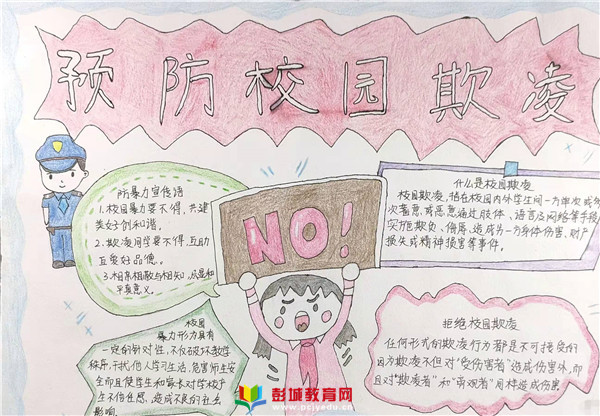 预防校园欺凌
防暴力宣传语
1.校园暴力要不得,共建
美好创和谐。
2.欺凌同学要不得,互助
互爱好品德。
3.相亲相敬与相知,从思和
平真意义。
NO!
什么是校园欺凌
校园欺凌,指在校园内外学生间一方单次或多
次蓄意或恶意通过肢体、语言及网络等手段
实施欺负、侮辱,造成另一方身体伤害、财产
损失或精神损害等事件。
校园
暴力行为具有
一定的针对性,不仅破坏教学
秩序,干扰他人学习生活,危害师生安
全而且使学生和
产生不信任感,造成不良的社会
影响。
拒绝校园欺凌
任何形式的欺凌行为都是不可接受的
因为欺凌不但对“受伤害者”造成伤害外,而
且对“欺凌者”和“旁观者”同样造成伤害
彭城教育网
www.pcjyedu.cn